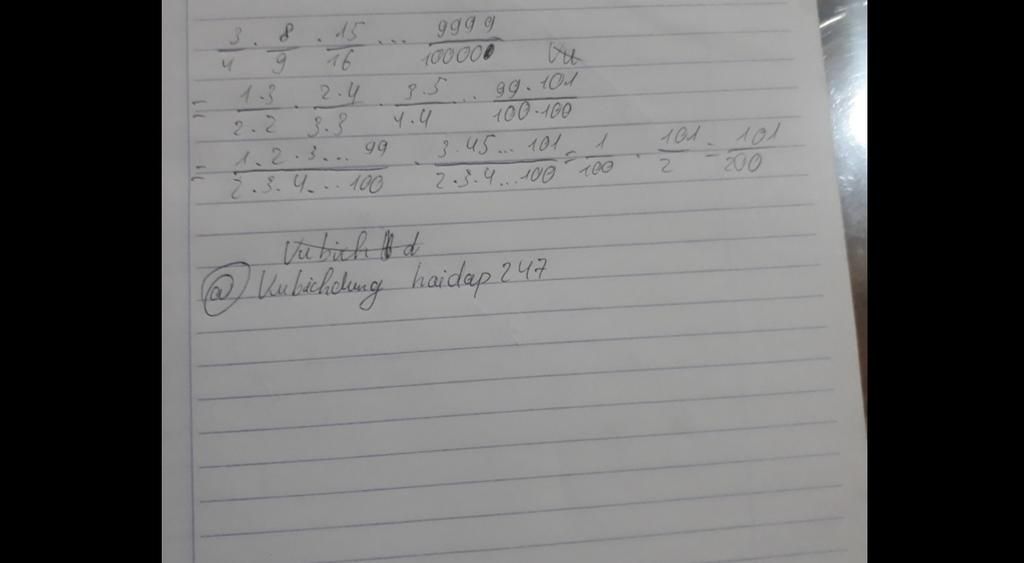 3/4 . 8/9 . 15/16 ... 9999/10000 Vu
= 1.3/2.2 . 2.4/3.3 . 3.5/4.4 ... 99.101/100.100
= 1.2.3...99/2.3.4...100 . 3.45...101/2.3.4...100 = 1/100 . 101/2 = 101/200
Vubich d
@ Vubichdung haidap247